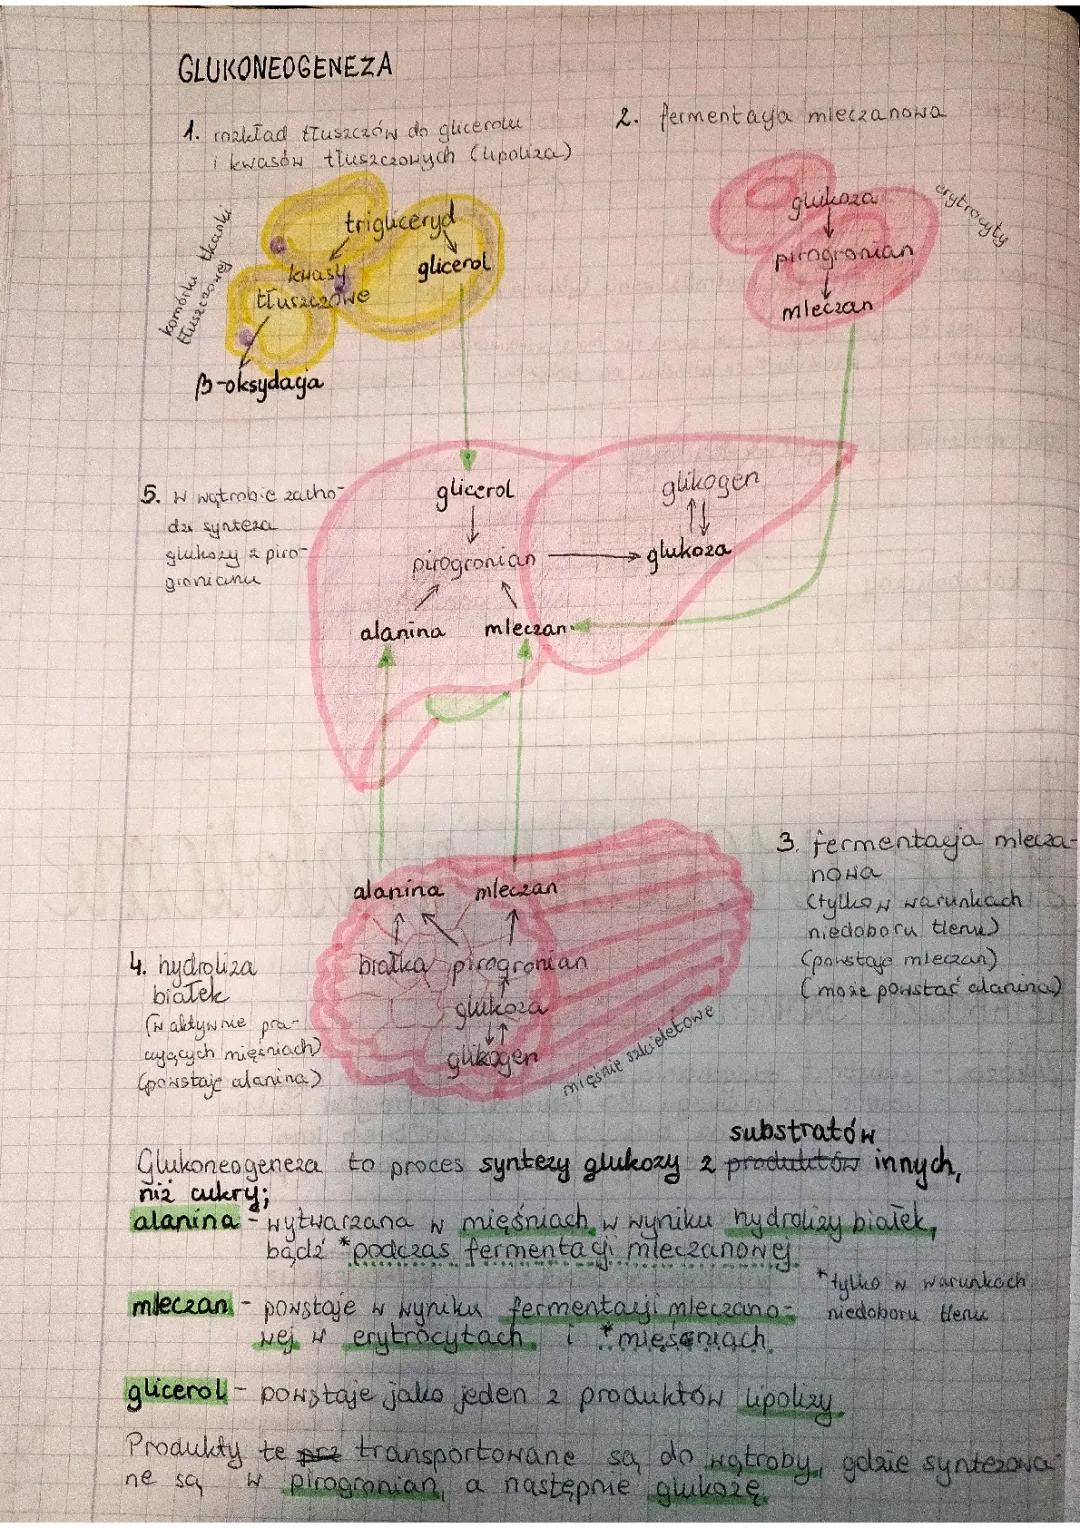 GLUKONEOGENEZA
1. rozkład tłuszczów do glicerolu
i kwasów tłuszczowych (lipoliza)
2. fermentacja mleczanowa
komórki tkanki
tłuszczowej
trigliceryd
kwasy
tłuszczowe
glicerol
β-oksydacja
erytrocyty
glukoza
pirogronian
mleczan
5. w wątrobie zacho-
dzi synteza
glukozy z piro-
gronianu
glicerol
glikogen
pirogronian
glukoza
alanina
mleczan
3. fermentacja mlecza-
nowa
(tylko w warunkach
niedoboru tlenu)
(powstaje mleczan)
(może powstać alanina)
alanina
mleczan
4. hydroliza
białek
(w aktywnie pra-
cujących mięśniach)
(powstaje alanina)
białka
pirogronian
glukoza
glikogen
mięśnie szkieletowe
substratów
Glukoneogeneza to proces syntezy glukozy z produktów innych,
niż cukry;
alanina - wytwarzana w mięśniach w wyniku hydrolizy białek,
bądź *podczas fermentacji mleczanowej
*tylko w warunkach
niedoboru tlenu
mleczan - powstaje w wyniku fermentacji mleczano-
wej w erytrocytach i *mięśniach
glicerol - powstaje jako jeden z produktów lipolizy
Produkty te prz transportowane są do wątroby, gdzie syntezowa
ne są w pirogronian, a następnie glukozę.